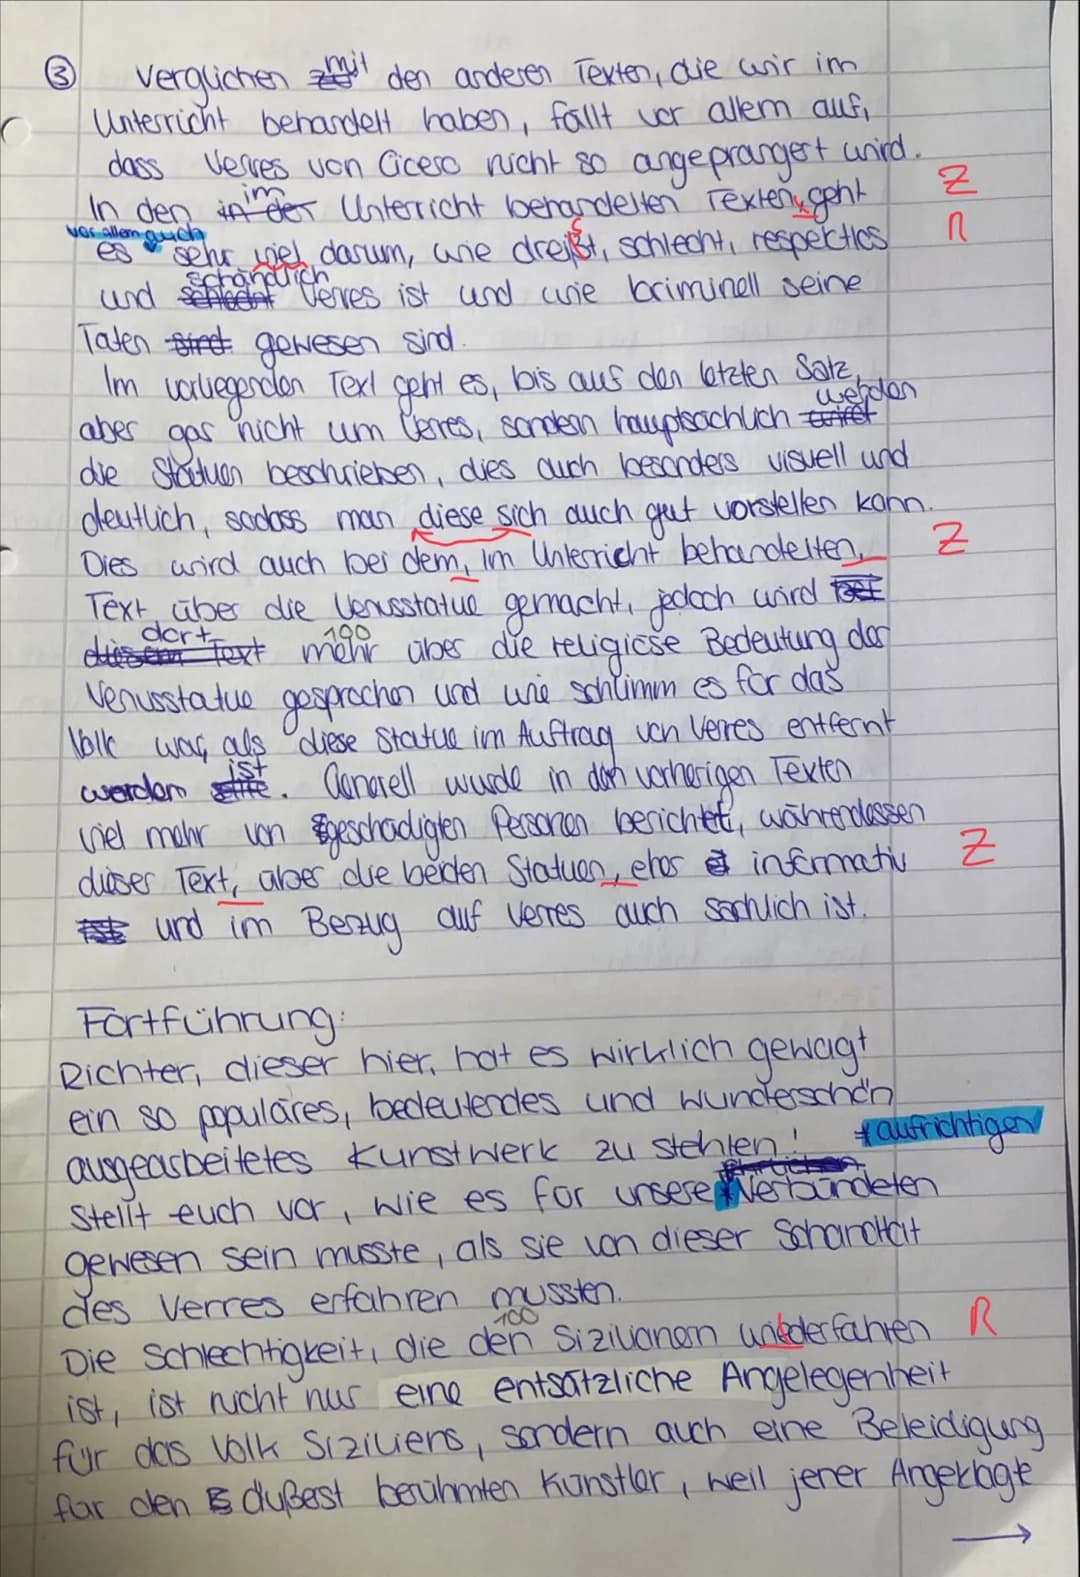 ③ Verglichen mit den anderen Texten, die wir im
Unterricht behandelt haben, fällt vor allem auf,
dass Verres von Cicero nicht so angeprangert wird.
In den im Unterricht behandelten Texten, geht Z
es vor allem auch sehr viel darum, wie dreißt, schlecht, respektlos R
und schändlich Verres ist und wie kriminell seine
Taten gewesen sind.
Im vorliegenden Text geht es, bis auf den letzten Satz,
aber gar nicht um Verres, sondern hauptsächlich werden
die Statuen beschrieben, dies auch besonders visuell und
deutlich, sodass man diese sich auch gut vorstellen kann.
Dies wird auch bei dem, im Unterricht behandelten, Z
Text über die Venusstatue gemacht, jedoch wird
dort mehr über die religiöse Bedeutung der
100
Venusstatue gesprochen und wie schlimm es für das
Volk war, als diese Statue im Auftrag von Verres entfernt
werden ist. Generell wurde in den vorherigen Texten
viel mehr von geschädigten Personen berichtet, währenddessen
dieser Text, aber die beiden Statuen, eher informativ Z
und im Bezug auf Verres auch sachlich ist.
Fortführung:
Richter, dieser hier, hat es wirklich gewagt
ein so populäres, bedeutendes und wunderschön
ausgearbeitetes Kunstwerk zu stehlen! * aufrichtigen
Stellt euch vor, wie es für unsere * Verbündeten
gewesen sein musste, als sie von dieser Schandtat
des Verres erfahren mussten.
100
Die Schlechtigkeit, die den Sizilianern wiederfahren R
ist, ist nicht nur eine entsätzliche Angelegenheit
für das Volk Siziliens, sondern auch eine Beleidigung
für den äußest berühmten Künstler, weil jener Angeklagte
→